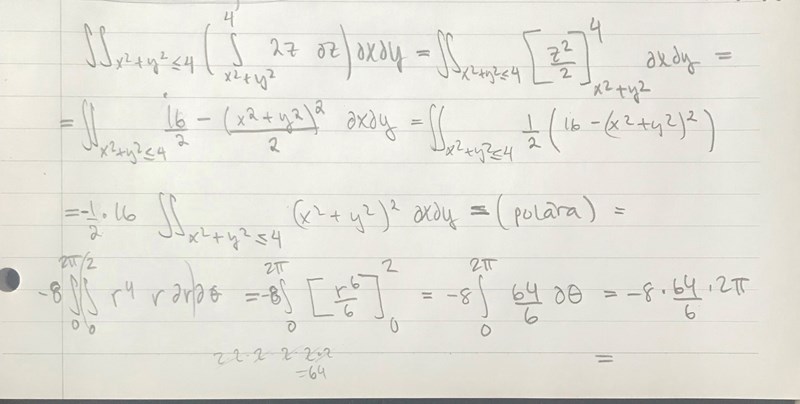 ∬_{x²+y²≤4} ( ∫_{x²+y²}^{4} 2z ∂z ) ∂x∂y = ∬_{x²+y²≤4} [ z²/2 ]_{x²+y²}^{4} ∂x∂y =
= ∬_{x²+y²≤4} 16/2 - (x²+y²)²/2 ∂x∂y = ∬_{x²+y²≤4} 1/2 (16-(x²+y²)²)
= -1/2 · 16 ∬_{x²+y²≤4} (x²+y²)² ∂x∂y = (polära) =
-8 ∫_{0}^{2π} ∫_{0}^{2} r⁴ r ∂r ∂θ = -8 ∫_{0}^{2π} [ r⁶/6 ]_{0}^{2} = -8 ∫_{0}^{2π} 64/6 ∂θ = -8 · 64/6 · 2π
2 2·2·2·2·2·2
=64
=